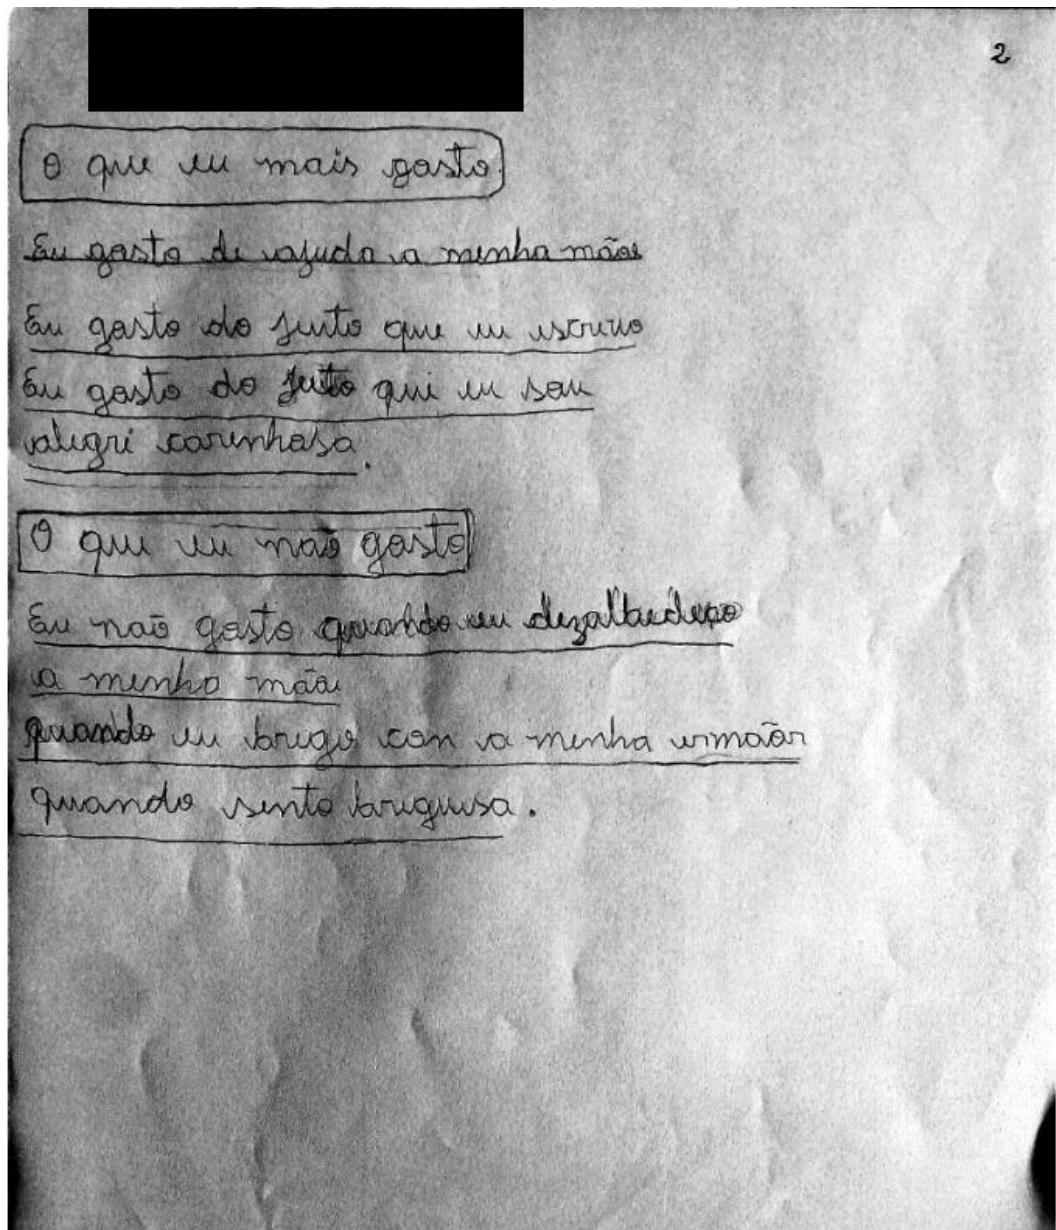 2
O que eu mais gosto.
Eu gosto de ajuda a minha mãe
Eu gosto do jeito que eu escrevo
Eu gosto do jeito que eu sou
alegri carinhosa.
O que eu não gosto
Eu não gosto quando eu dezalbedeço
a minha mãe
quando eu brigo con a minha irmãor
quando sento briguisa.